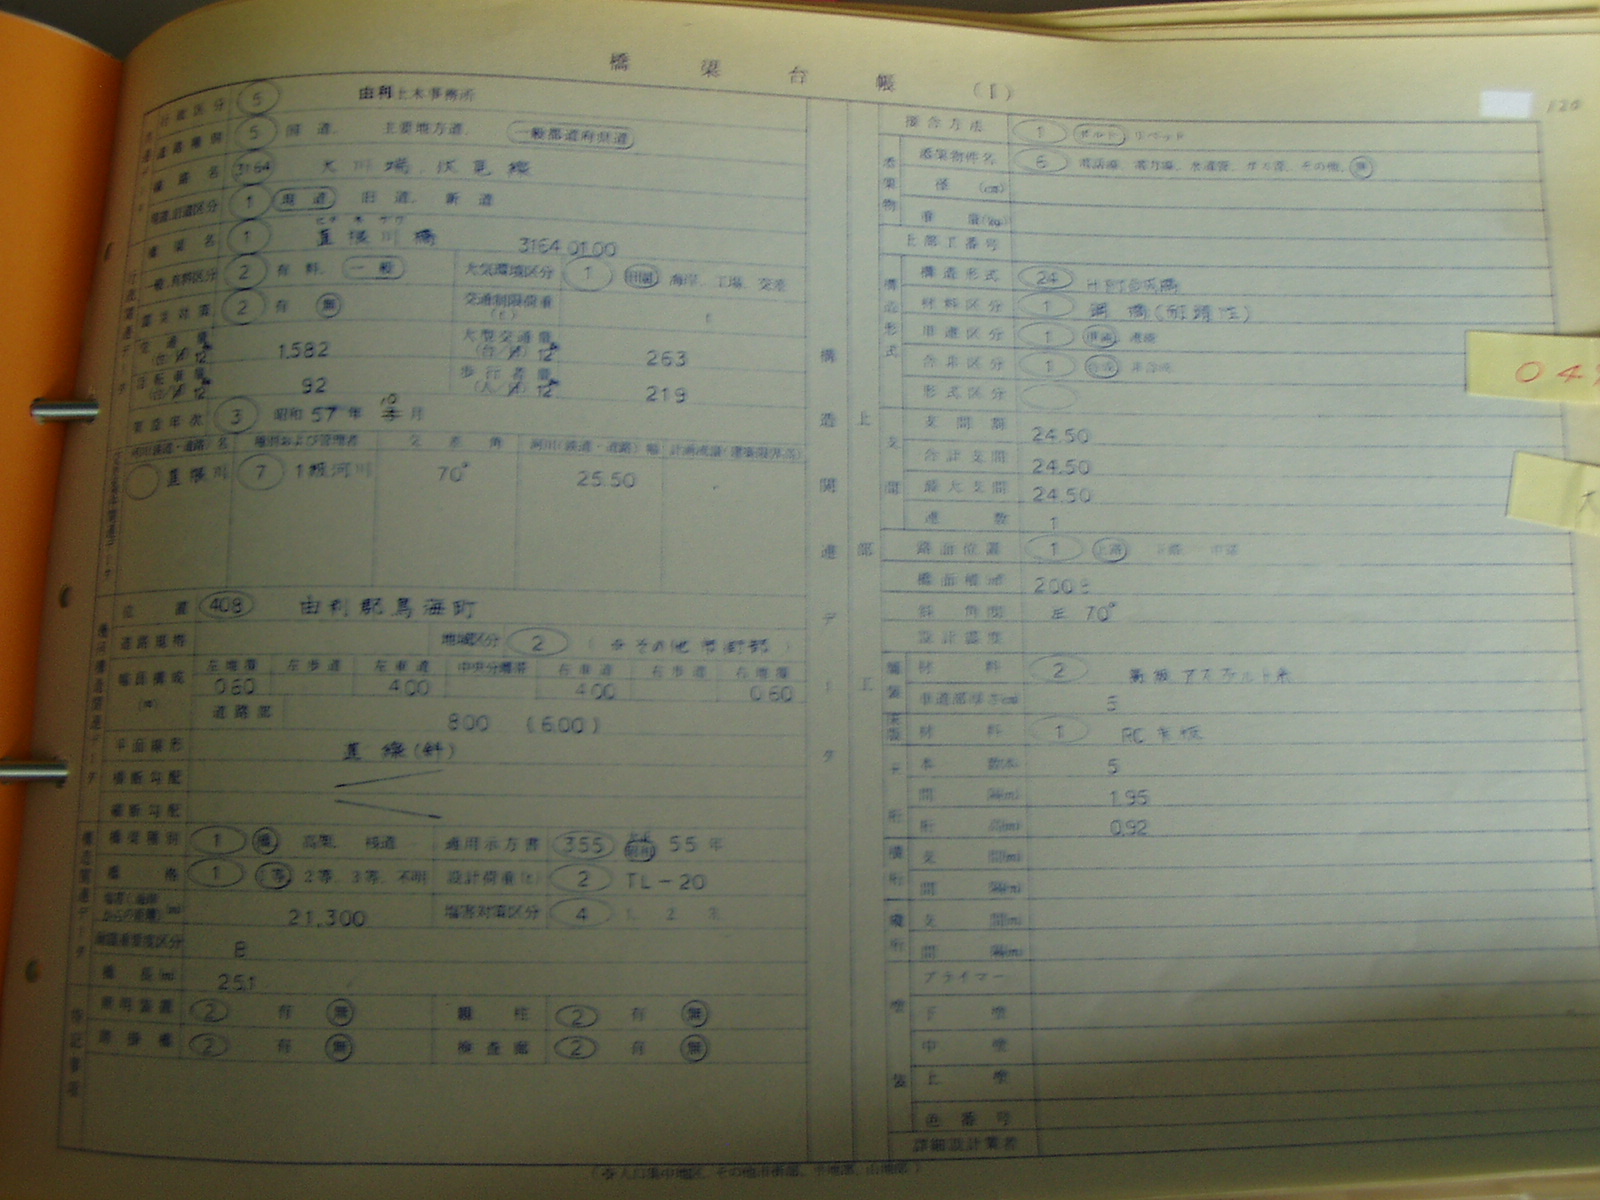 橋梁台帳 (Ⅱ)
行政区分 5 由利土木事務所
道路種別 5 国道、 主要地方道、 一般都道府県道
路線名 3164 大川端、伏見線
現道、旧道区分 1 現道 旧道、 新道
橋梁名 1 直根川橋 3164 01.00
一般、有料区分 2 有料、 一般 大気環境区分 1 田園 海岸、工場、交差
2 有 無 交通制限荷重 (t) t
交通量 (台/ 12h 1,582 大型交通量 (台/ 12h 263
自転車量 (台/ 12h 92 歩行者量 (人/ 12h 219
架設年次 3 昭和 57年 10 月
河川(鉄道・道路)名 種別および管理者 交差角 河川(鉄道・道路)幅
直根川 7 1級河川 70° 25.50
位置 408 由利郡鳥海町
道路規格 地域区分 2 (※その他市街部)
幅員構成 (m) 左地覆 左歩道 左車道 中央分離帯 右車道 右歩道 右地覆
0.60 4.00 4.00 0.60
道路部 8.00 (6.00)
平面線形 直線(斜)
橋梁種別 1 橋 高架、 桟道 適用示方書 355 昭和 55年
橋格 1 1等 2等、3等、不明 設計荷重(t) 2 TL-20
21,300 塩害対策区分 4 1. 2 3
8
橋長(m) 25.1
照明装置 2 有 無 親柱 2 有 無
2 有 無 検査廊 2 有 無
(※人口集中地区、その他市街部、平地部、山地部)
構造関連データ
上部工
接合方法 1 ボルト リベット
添架物
添架物件名 6 電話線、電力線、水道管、ガス管、その他、無
径 (cm)
重量(kg)
上部工番号
構造形式
構造形式 24 H形鋼合成桁橋
材料区分 1 鋼橋(耐候性)
車道区分 1 車道 歩道
合成区分 1 合成 非合成
形式区分
支間
支間割 24.50
合計支間 24.50
最大支間 24.50
連数 1
路面位置 1 上路 下路 中路
橋面積㎡ 200.8
斜角(度) 左 70°
設計震度
舗装 材料 2 簡易アスファルト系
車道部厚さcm 5
床版 材料 1 RC床版
主桁 本数(本) 5
間隔(m) 1.95
桁高(m) 0.92
横桁 支間(m)
間隔(m)
縦桁 支間(m)
間隔(m)
塗装
プライマー
下塗
中塗
上塗
色番号
詳細設計業者